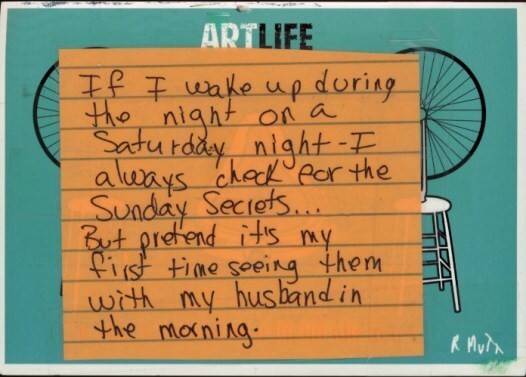 ARTLIFE
If I wake up during
the night on a
Saturday night - I
always check for the
Sunday Secrets...
But pretend it's my
first time seeing them
with my husband in
the morning.
R. Mutt